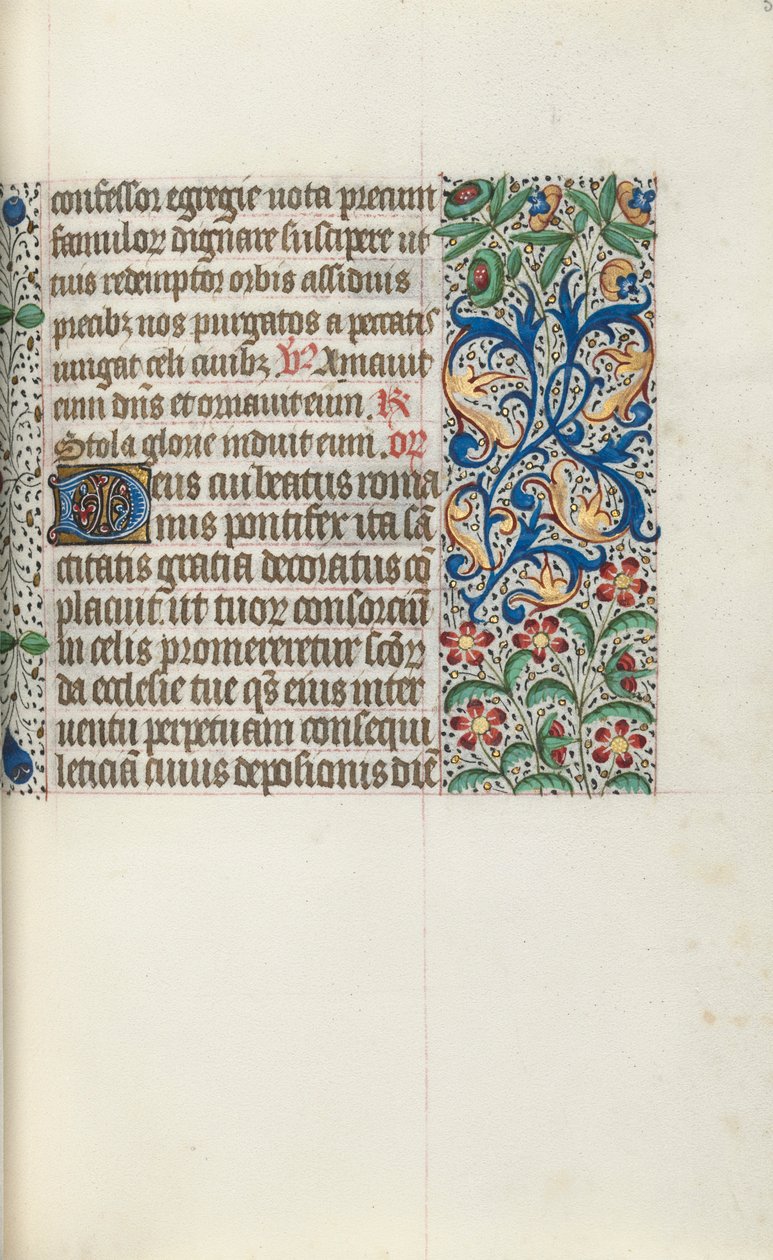 confessor egregie uota precum
famuloꝝ dignare suscipere ut
tuis redemptor orbis assiduis
precibꝫ nos purgatos a peccatis
iungat celi ciuibꝫ. V̾ Amauit
eum dn̄s et ornauit eum. R̾
Stola glorie induit eum. oꝝ
Deus cui beatus roma
nus pontifex ita sā
ctitatis gracia decoratus cō
placuit. ut tuoꝝ consorciū
in celis promereretur scōꝝ
da ecclesie tue q̄s eius inter
uentu perpetuam consequi
leticiā cuius deposionis diē